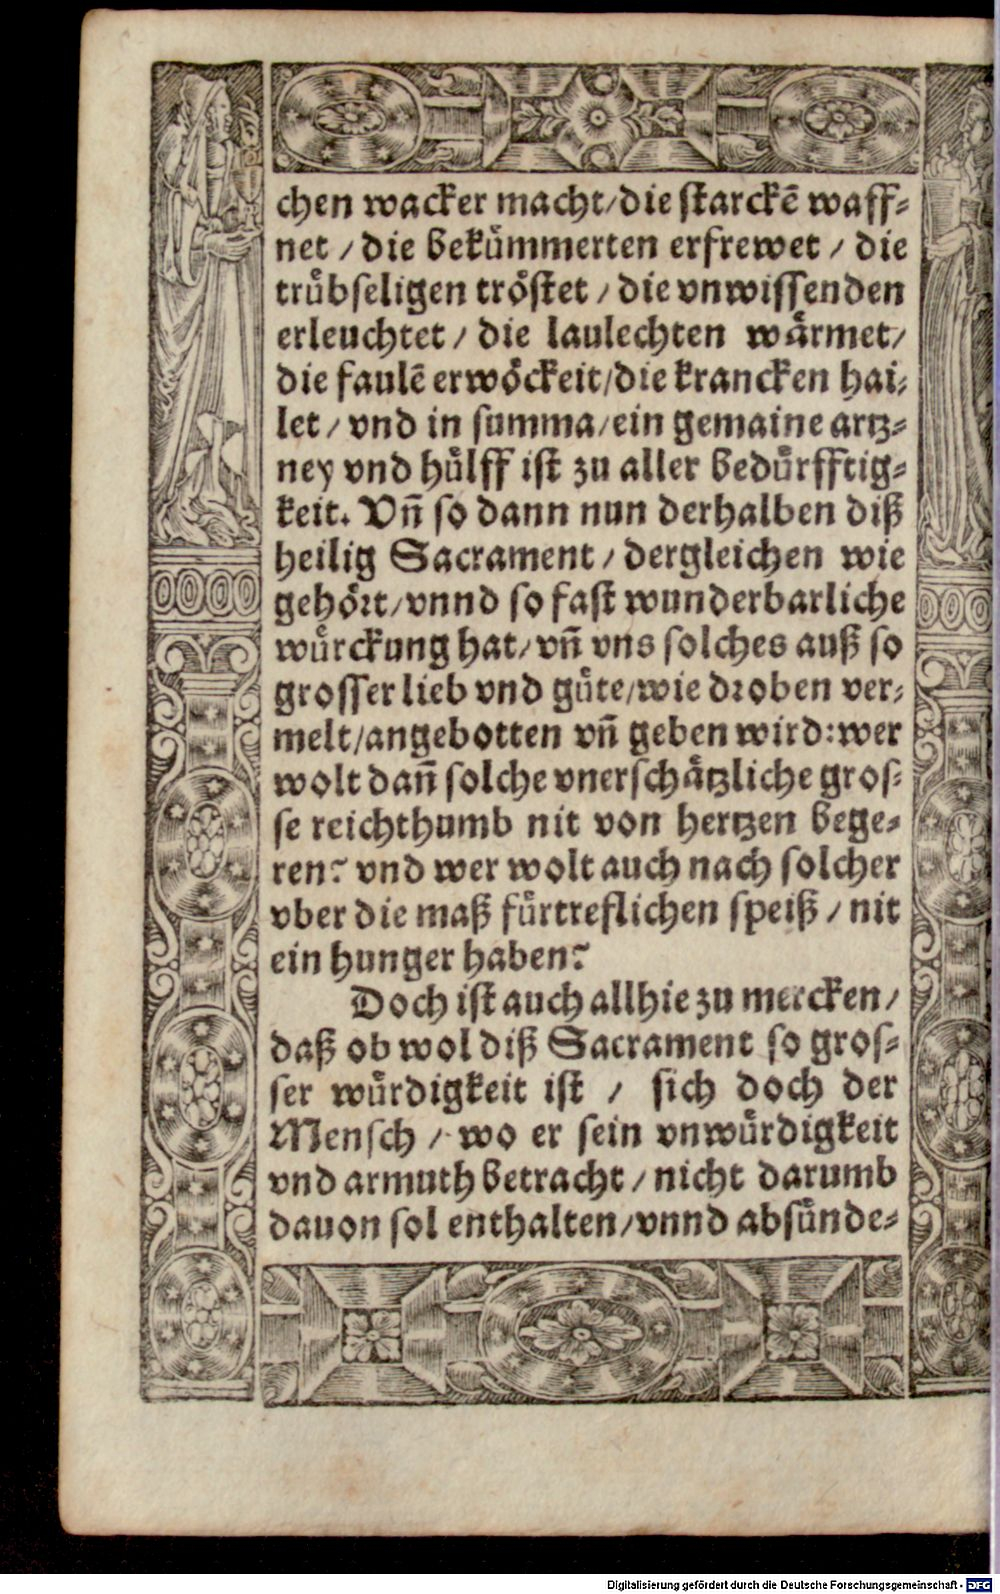 chen wacker macht/die starckē waff⸗
net / die bekuͤmmerten erfrewet / die
truͤbseligen troͤstet / die vnwissenden
erleuchtet / die laulechten waͤrmet/
die faulē erwoͤckeit/die krancken hai⸗
let / vnd in summa/ein gemaine artz⸗
ney vnd huͤlff ist zu aller beduͤrfftig⸗
keit. Vn̄ so dann nun derhalben diß
heilig Sacrament / dergleichen wie
gehoͤrt/vnnd so fast wunderbarliche
wuͤrckung hat/ vn̄ vns solches auß so
grosser lieb vnd guͤte/wie droben ver⸗
melt/angebotten vn̄ geben wird: wer
wolt dan̄ solche vnerschaͤtzliche gros⸗
se reichthumb nit von hertzen bege⸗
ren? vnd wer wolt auch nach solcher
vber die maß fuͤrtreflichen speiß / nit
ein hunger haben?
Doch ist auch allhie zu mercken/
daß ob wol diß Sacrament so gros⸗
ser wuͤrdigkeit ist / sich doch der
Mensch / wo er sein vnwuͤrdigkeit
vnd armuth betracht / nicht darumb
dauon sol enthalten/vnnd absuͤnde⸗
Digitalisierung gefördert durch die Deutsche Forschungsgemeinschaft - DFG